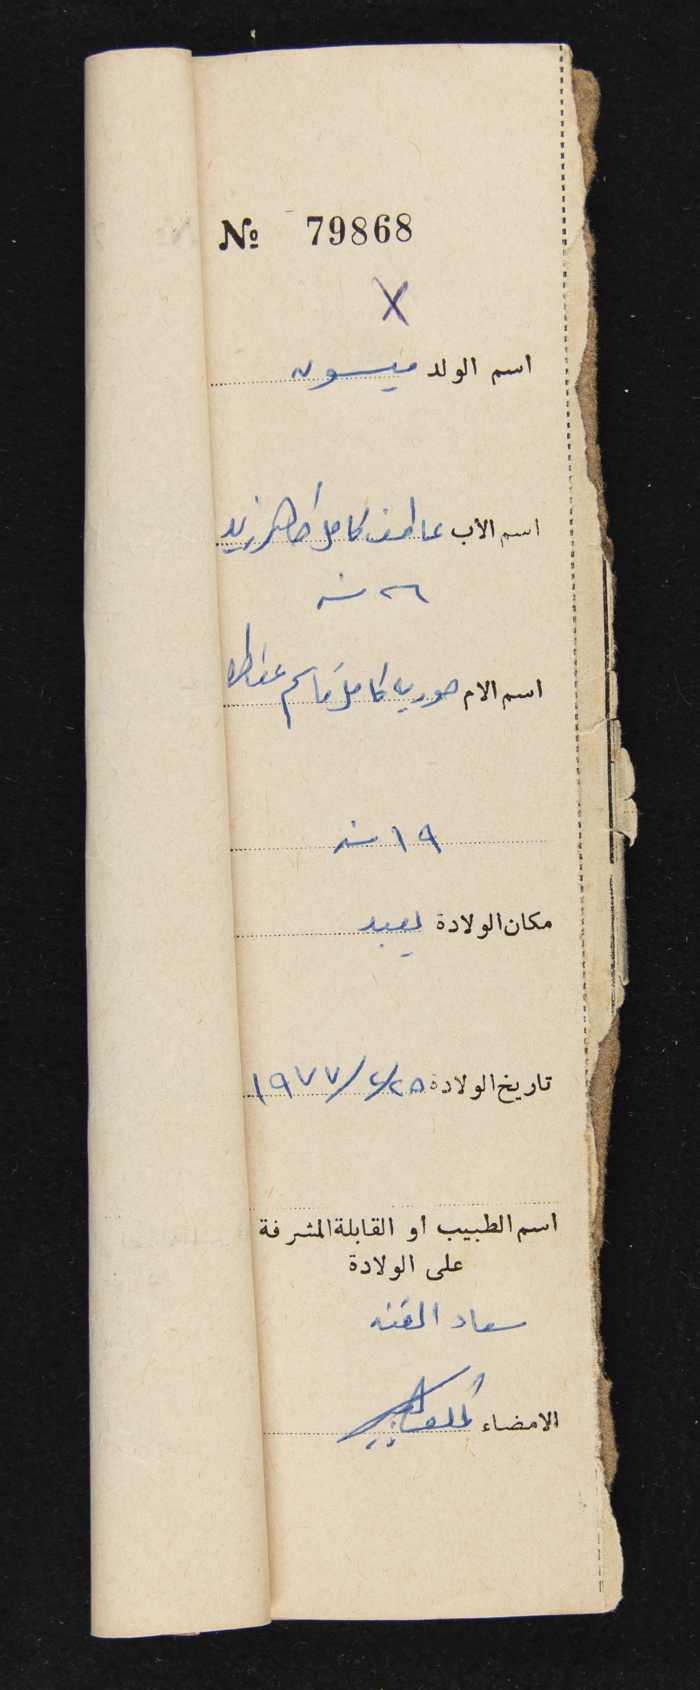 № 79868
X
اسم الولد ميسون
اسم الأب عاطف كامل طاهر زيد
٢٦ سنه
اسم الام حوريه كامل قاسم
١٩ سنه
مكان الولادة يعبد
تاريخ الولادة ٢٥/٤/١٩٧٧
اسم الطبيب او القابلة المشرفة
على الولادة
سعاد
الامضاء